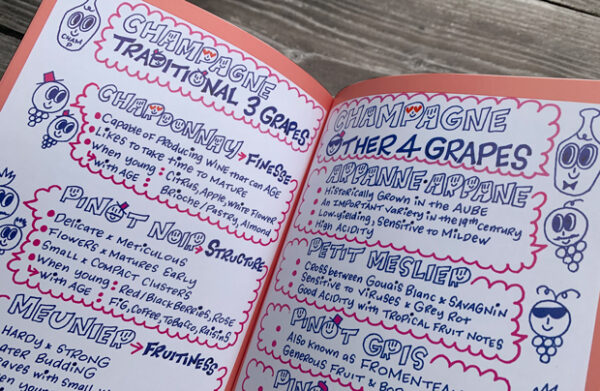 CHAMP
CHAMPAGNE
TRADITIONAL 3 GRAPES
CHARDONNAY → FINESSE
• Capable of PRODUCING WINE THAT CAN AGE
• Likes to TAKE TIME TO MATURE
• When Young : Citrus, Apple, White Flower
→ With AGE : Brioche/Pastry, Almond
PINOT NOIR → STRUCTURE
• Delicate & Meticulous
• Flowers & Matures Early
• Small & Compact Clusters
• When Young : Red/Black Berries, Rose
→ With AGE : Fig, Coffee, Tobacco, Raisins
MEUNIER → FRUITINESS
HARDY & STRONG
LATER Budding
LEAVES with small
When Young
CHAMPAGNE
OTHER 4 GRAPES
ARBANNE ARBANE
• Historically Grown in the AUBE
• AN IMPORTANT VARIETY in the 19th century
• Low-yielding, Sensitive to Mildew
• High Acidity
PETIT MESLIER
• Cross between Gouais Blanc & SAVAGNIN
• Sensitive to VIRUSES & Grey Rot
• Good Acidity with TROPICAL FRUIT NOTES
PINOT GRIS
• Also known as FROMENTEAU
• Generous Fruit &
PINOT